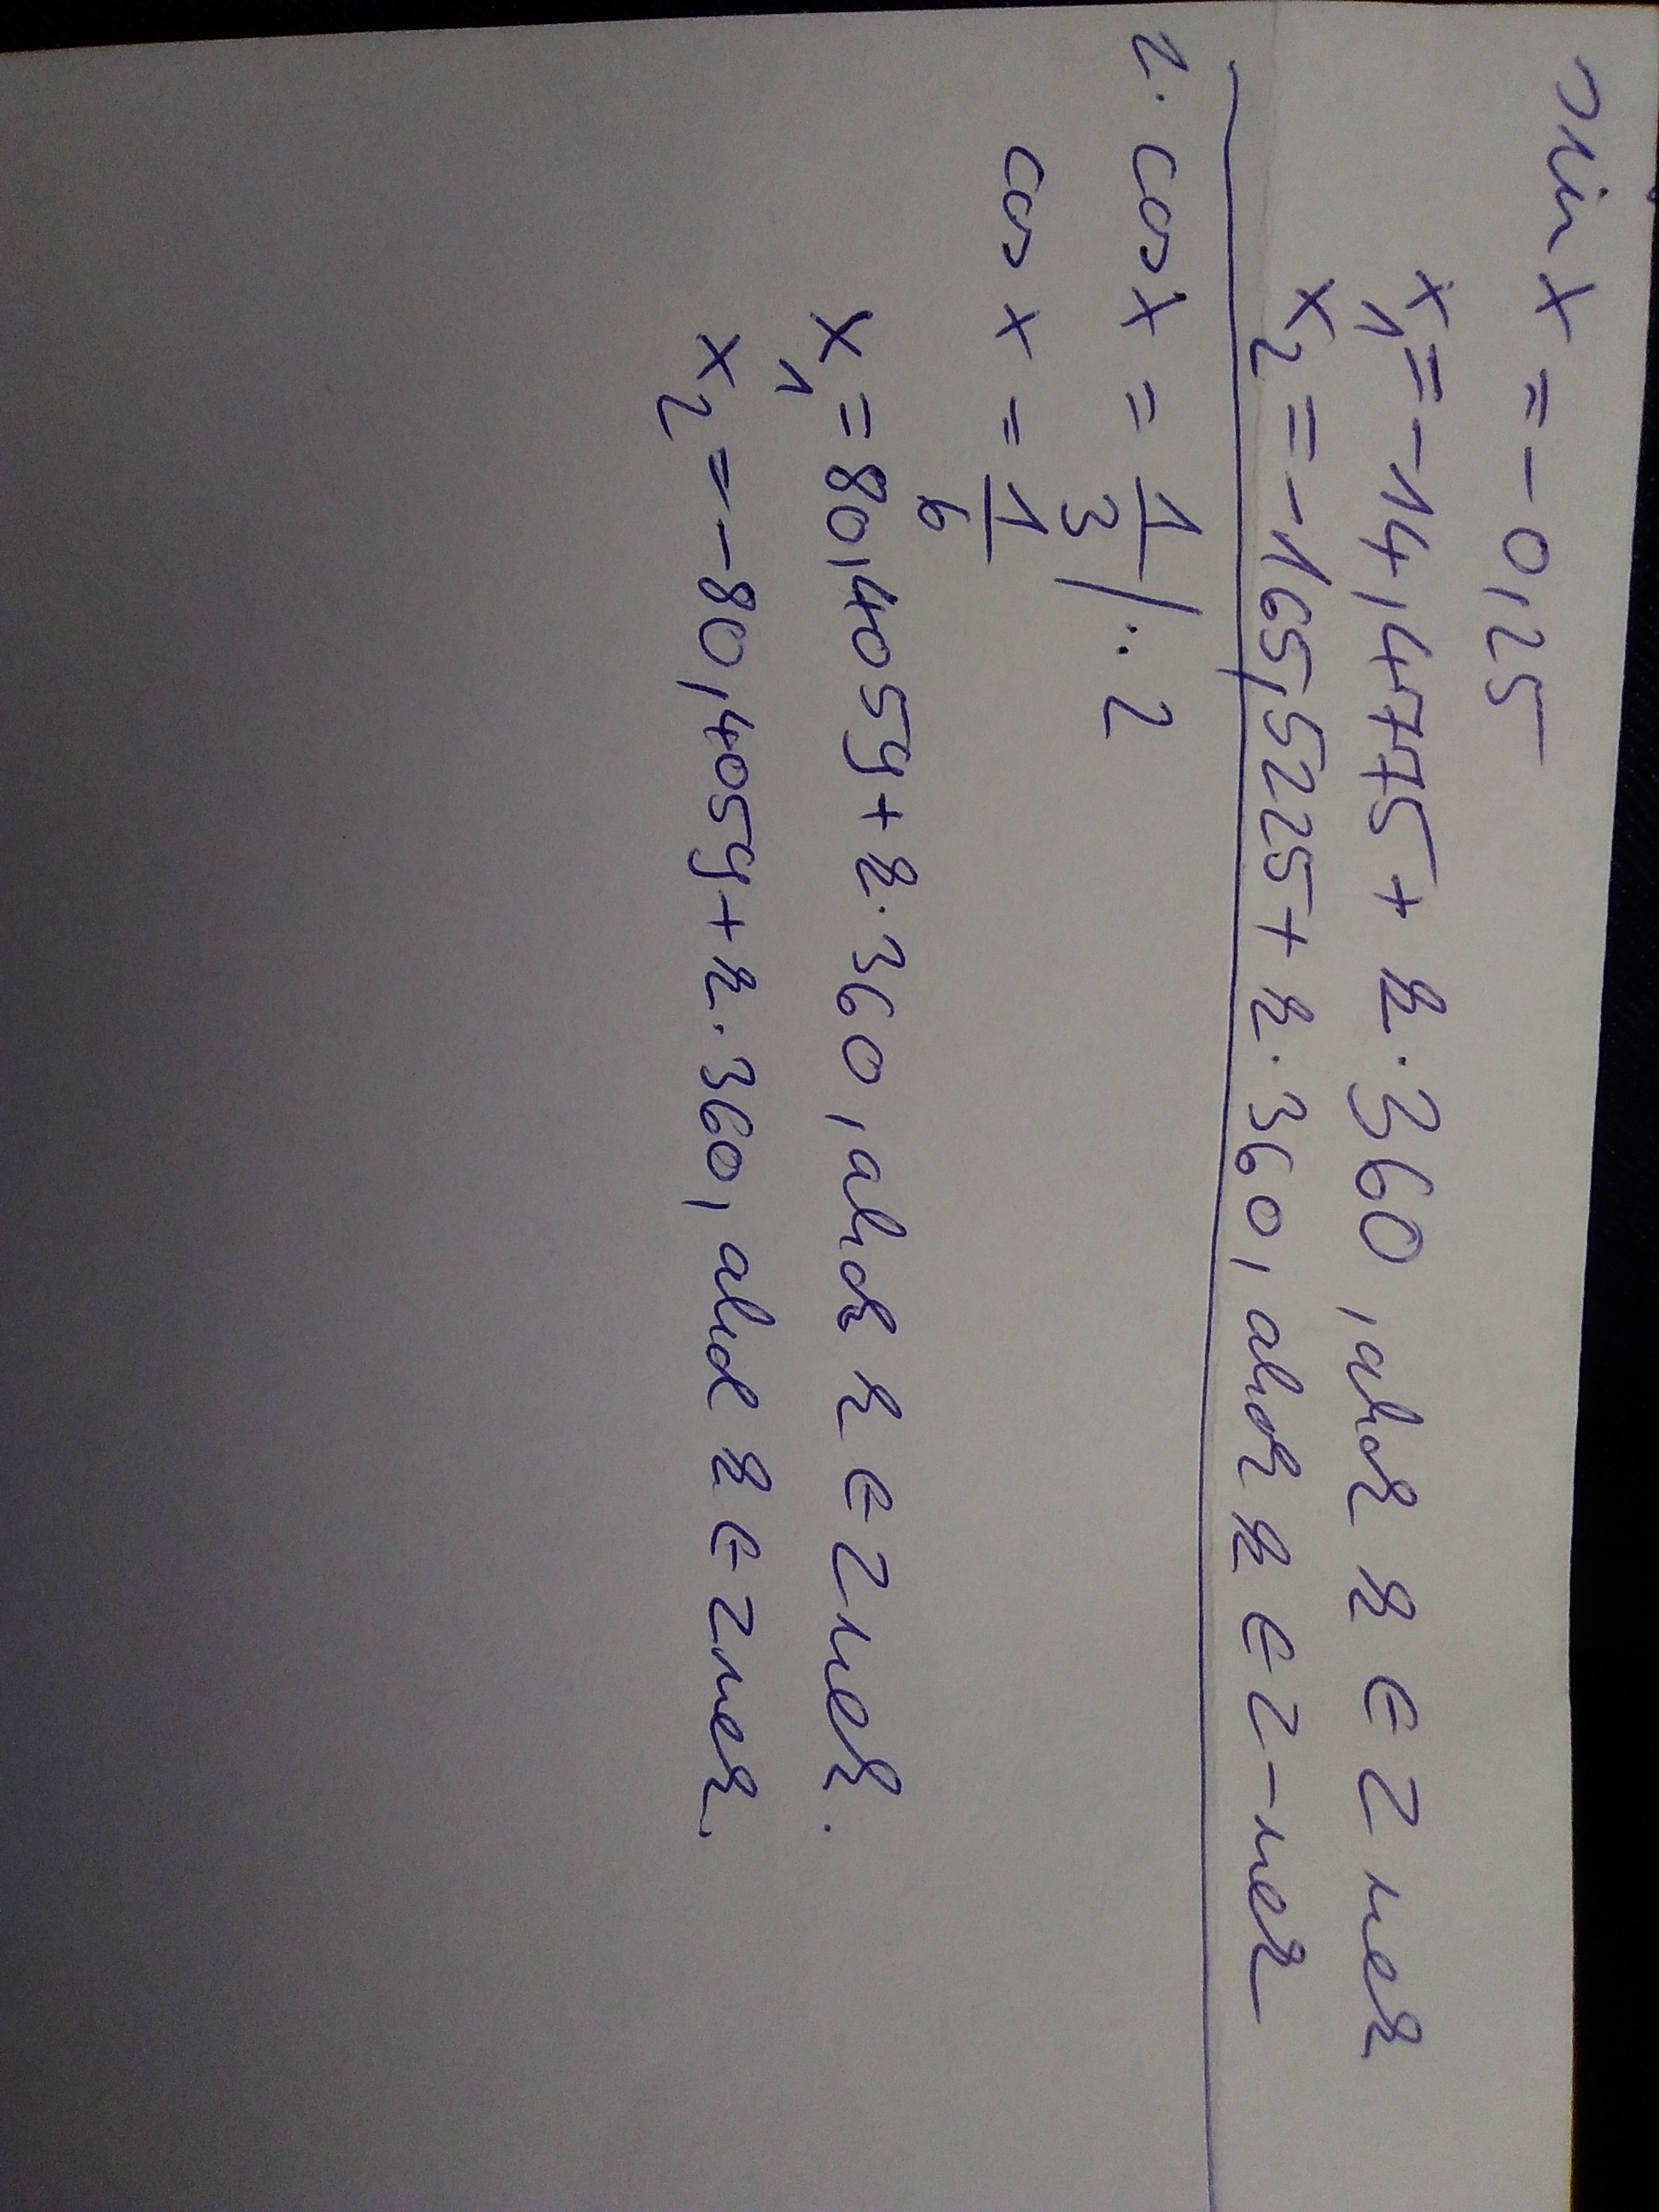 sin x = -0,25
x₁ = -14,4775 + k·360, ahol k ∈ Z nek
x₂ = -165,5225 + k·360, ahol k ∈ Z-nek
2·cos x = 1/3 /:2
cos x = 1/6
x₁ = 80,4059 + k·360, ahol k ∈ Z nek.
x₂ = -80,4059 + k·360, ahol k ∈ Z nek.